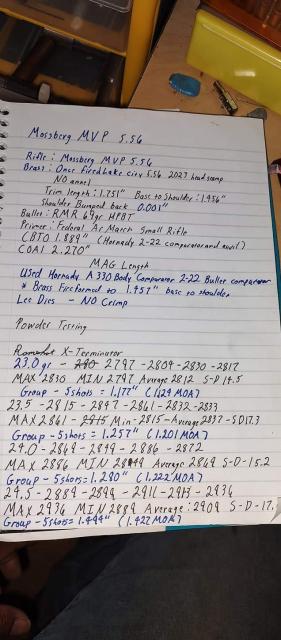 Mossberg MVP 5.56
Rifle: Mossberg MVP 5.56
Brass: Once fired Lake City 5.56 2023 headstamp
NO anneal
Trim length: 1.751" Base to Shoulder: 1.456"
Shoulder Bumped back 0.001"
Bullet: RMR 69gr HPBT
Primer: Federal Ar Match Small Rifle
CBTO 1.889" (Hornady 2-22 comparator and anvil)
COAl 2.270"
MAG Length
Used Hornady A330 Body Comparator 2-22 Bullet comparator
* Brass fireformed to 1.457" base to shoulder
Lee Dies - NO Crimp
Powder Testing
X-Terminator
23.0gr - 2797 - 2804 - 2830 - 2817
MAX 2830 MIN 2797 Average 2812 S-D 14.5
Group - 5 shots = 1.177" (1.124 MOA)
23.5 - 2815 - 2847 - 2841 - 2832 - 2833
MAX 2861 Min - 2815 - Average 2837 - SD 17.3
Group - 5 shots = 1.257" (1.201 MOA)
24.0 - 2849 - 2886 - 2872
MAX 2886 MIN Average 2869 S-D - 15.2
Group - 5 shots = 1.280" (1.222 MOA)
24.5 - 2889 - 2894 - 2911 - 2913 - 2936
MAX 2936 MIN 2889 Average: 2909 S-D - 17.
Group - 5 shots = 1.494" (1.427 MOA)